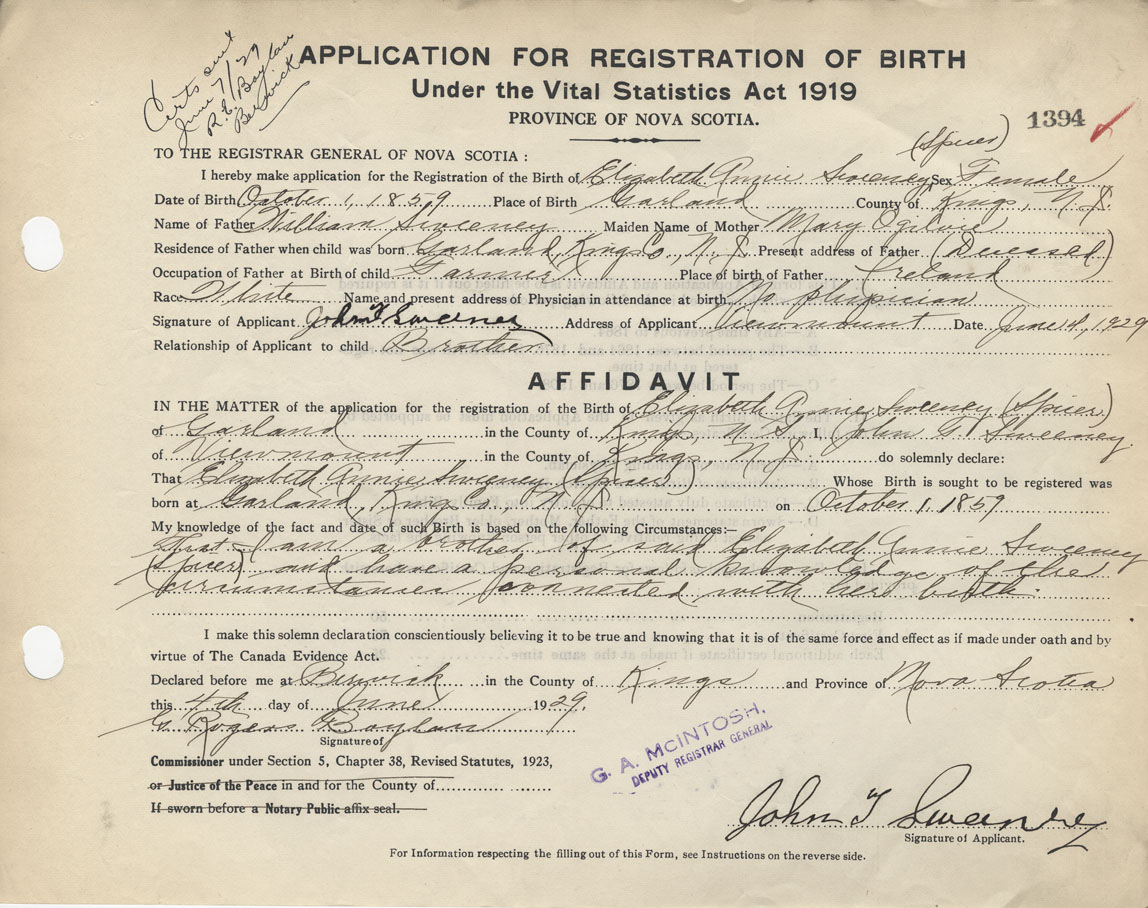 Certs sent
June 7/29
R.E. Boylan
Berwick
APPLICATION FOR REGISTRATION OF BIRTH
Under the Vital Statistics Act 1919
PROVINCE OF NOVA SCOTIA.
1394
(Spicer)
TO THE REGISTRAR GENERAL OF NOVA SCOTIA :
I hereby make application for the Registration of the Birth of Elizabeth Annie Sweeney Sex Female
Date of Birth October 1, 1859 Place of Birth Garland County of Kings, N.S.
Name of Father William Sweeney Maiden Name of Mother Mary Ogilvie
Residence of Father when child was born Garland, Kings Co., N.S. Present address of Father (Deceased)
Occupation of Father at Birth of child Farmer Place of birth of Father Ireland
Race White Name and present address of Physician in attendance at birth No physician
Signature of Applicant John T Sweeney Address of Applicant Viewmount Date June 4, 1929
Relationship of Applicant to child Brother
AFFIDAVIT
IN THE MATTER of the application for the registration of the Birth of Elizabeth Annie Sweeney (Spicer)
of Garland in the County of Kings, N.S. I, John G. Sweeney
of Viewmount in the County of Kings, N.S. do solemnly declare:
That Elizabeth Annie Sweeney (Spicer) Whose Birth is sought to be registered was
born at Garland, Kings Co., N.S on October 1, 1859
My knowledge of the fact and date of such Birth is based on the following Circumstances:—
That I am a brother of said Elizabeth Annie Sweeney
(Spicer) and have a personal knowledge of the
circumstances connected with her birth.
I make this solemn declaration conscientiously believing it to be true and knowing that it is of the same force and effect as if made under oath and by
virtue of The Canada Evidence Act.
Declared before me at Berwick in the County of Kings and Province of Nova Scotia
this 4th day of June 1929.
G. Rogers Boylan
Signature of
Commissioner under Section 5, Chapter 38, Revised Statutes, 1923,
or Justice of the Peace in and for the County of
If sworn before a Notary Public affix seal.
G. A. McINTOSH,
DEPUTY REGISTRAR GENERAL
John T Sweeney
Signature of Applicant.
For Information respecting the filling out of this Form, see Instructions on the reverse side.